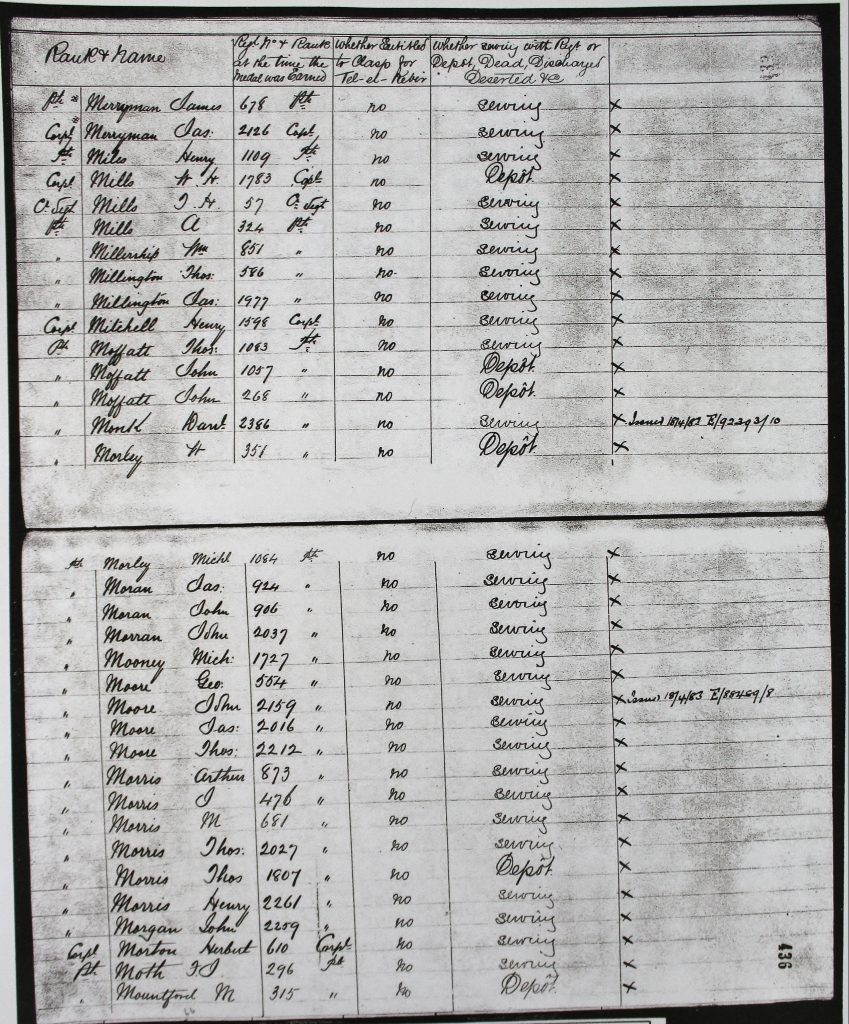 Rank & Name Regtl No & Rank at the time the medal was Earned Whether Entitled to Clasp for Tel-el-Kebir Whether serving with Regt or Depôt, Dead, Discharged Deserted &c
Pte * Merryman James 678 Pte no serving x
Corpl * Merryman Jas: 2126 Corpl no serving x
Pte Miles Henry 1109 Pte no serving x
Corpl Mills H. H. 1783 Corpl no Depôt x
Cr Sergt Mills J. H. 57 Cr Sergt no serving x
Pte Mills A 324 Pte no serving x
" Millership Wm 851 " no serving x
" Millington Thos: 586 " no. serving x
" Millington Jas: 1977 " no serving x
Corpl Mitchell Henry 1598 Corpl no serving x
Pte Moffatt Thos: 1083 Pte no serving x
" Moffatt John 1057 " no Depôt x
" Moffatt John 268 " no Depôt x
" Monk Danl 2386 " no serving x Issued 18/4/83 E/92393/10
" Morley H 351 " no Depôt x
Pte Morley Michl 1084 Pte no serving x
" Moran Jas: 924 " no serving x
" Moran John 906 " no serving x
" Morran John 2037 " no serving x
" Mooney Mich: 1727 " no serving x
" Moore Geo: 554 " no serving x
" Moore John 2159 " no serving x issued 18/4/83 E/88469/8
" Moore Jas: 2016 " no serving x
" Moore Thos: 2212 " no serving x
" Morris Arthur 873 " no serving x
" Morris J 476 " no serving x
" Morris M 681 " no serving x
" Morris Thos: 2027 " no serving x
" Morris Thos 1807 " no Depôt x
" Morris Henry 2261 " no serving x
" Morgan John 2259 " no serving x
Corpl Morton Herbert 610 Corpl no serving x
Pte Moth F J 296 Pte no serving x
" Mountford M 315 " no Depôt x
436